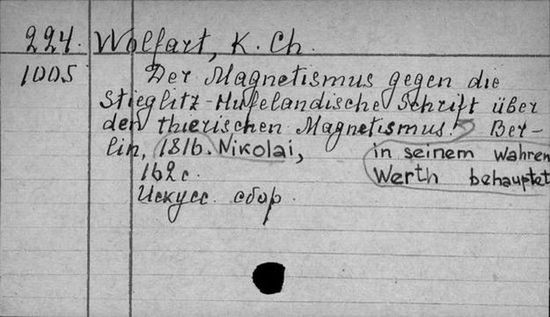 224. Wolfart, K. Ch.
1005 Der Magnetismus gegen die
Stieglitz-Hufelandische Schrift über
den thierischen Magnetismus. Ber-
lin, 1816. Nikolai, in seinem wahren
162 с. Werth behauptet
Искусс. сбор.